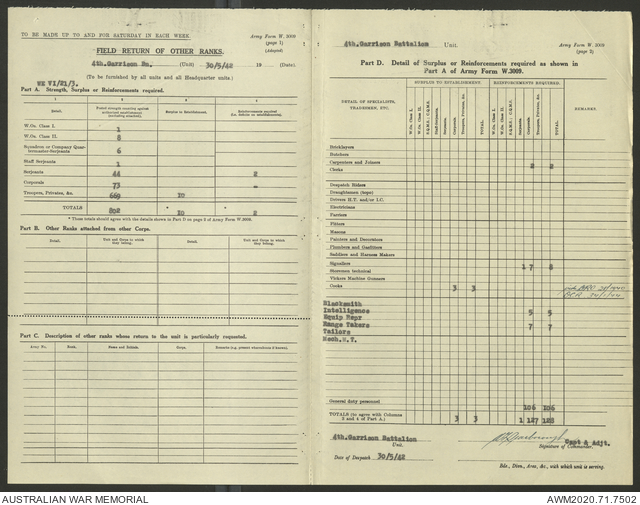 TO BE MADE UP TO AND FOR SATURDAY IN EACH WEEK.
Army Form W. 3009
(page 1)
(Adapted)
FIELD RETURN OF OTHER RANKS.
4th.Garrison Bn. (Unit) 30/5/42 19 (Date).
(To be furnished by all units and all Headquarter units.)
WE VI/21/3.
Part A. Strength, Surplus or Reinforcements required.
1 2 3 4
Detail. Surplus to Establishment. Reinforcements required
W.Os. Class I. 1
W.Os. Class II. 8
Squadron or Company Quar-
termaster-Serjeants 6
Staff Serjeants 1
Serjeants 44 2
Corporals 73 -
Troopers, Privates, &c. 669 10
TOTALS 802 * 10 * 2
* These totals should agree with the details shown in Part D on page 2 of Army Form W.3009.
Part B. Other Ranks attached from other Corps.
Detail. Unit and Corps to which they belong. Detail. Unit and Corps to which they belong.
Part C. Description of other ranks whose return to the unit is particularly requested.
Army No. Rank. Name and Initials. Corps. Remarks (e.g. present whereabouts if known).
4th.Garrison Battalion Unit.
Army Form W. 3009
(page 2)
Part D. Detail of Surplus or Reinforcements required as shown in
Part A of Army Form W.3009.
DETAIL OF SPECIALISTS, TRADESMEN, ETC.
SURPLUS TO ESTABLISHMENT. REINFORCEMENTS REQUIRED.
W.Os. Class I. W.Os. Class II. S.Q.M.S.; C.Q.M.S. Staff-Serjeants. Serjeants. Corporals. Troopers, Privates, &c. TOTAL.
W.Os. Class I. W.Os. Class II. Serjeants. Corporals. Troopers, Privates, &c. TOTAL.
REMARKS.
Bricklayers
Butchers
Carpenters and Joiners 2 2
Clerks
Despatch Riders
Draughtsmen (topo)
Drivers H.T. and/or I.C.
Electricians
Farriers
Fitters
Masons
Painters and Decorators
Plumbers and Gasfitters
Saddlers and Harness Makers
Signallers 1 7 8
Storemen technical
Vickers Machine Gunners
Cooks 3 3
Blacksmith
Intelligence 5 5
Equip Repr
Range Takers 7 7
Tailors
Mech.M.T.
General duty personnel 106 106
TOTALS (to agree with Columns
3 and 4 of Part A.) 3 3 1 127 128
4th.Garrison Battalion
Unit.
Capt & Adjt.
Signature of Commander.
Date of Despatch 30/5/42
Bde., Divn., Area, &c., with which unit is serving.
AUSTRALIAN WAR MEMORIAL AWM2020.71.7502